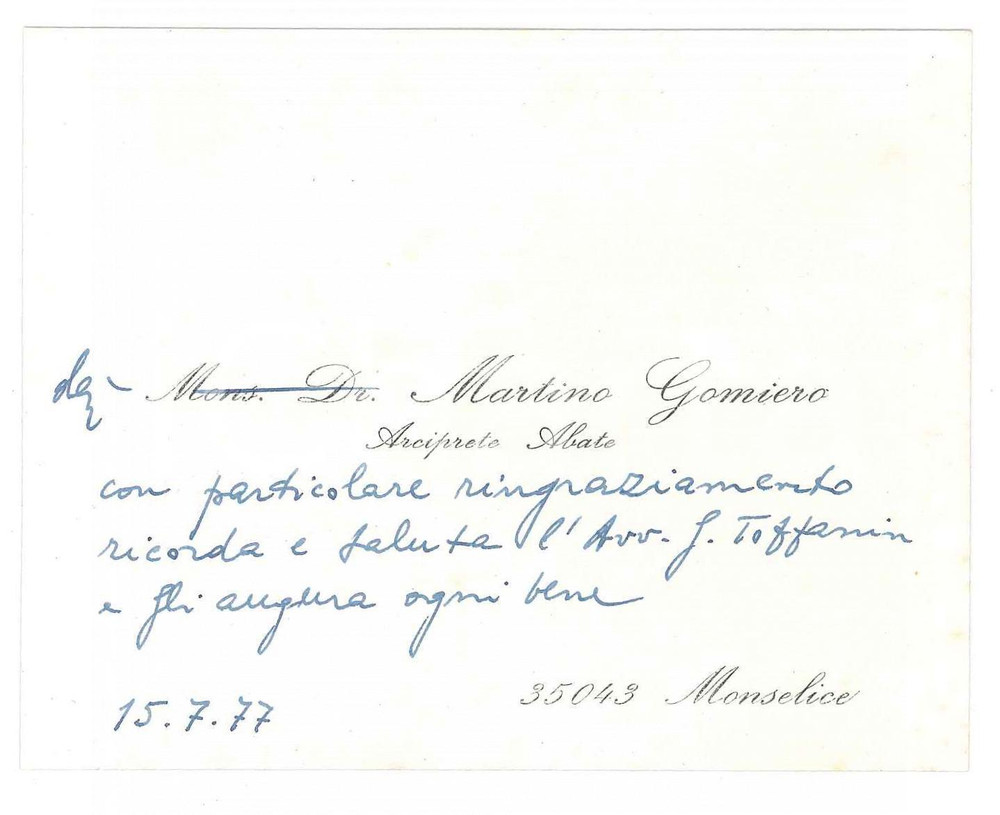 Mons. Dr. Martino Gomiero
Arciprete Abate
con particolare ringraziamento
ricorda e saluta l'Avv. G. Toffanin
e gli augura ogni bene
35043 Monselice
15.7.77